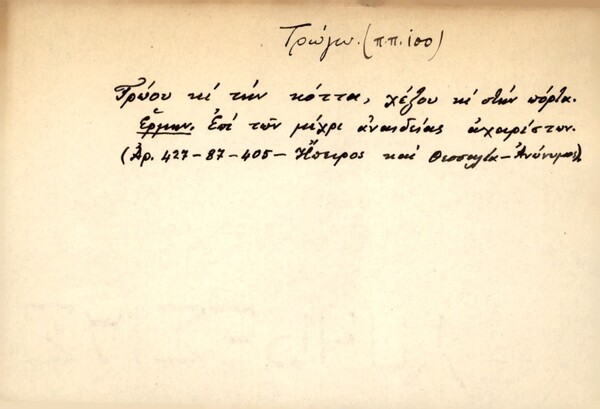 Τρώγω. (π.π. ισο)
Τρώου κί τήν κόττα, χέζου κί στήν πόρτα.
Ἑρμην. Ἐπί τῶν μέχρι ἀναιδείας ἀχαρίστων.
(Ἀρ. 427-87-405- Ἤπειρος καί Θεσσαλία - Ἀνώνυμος)